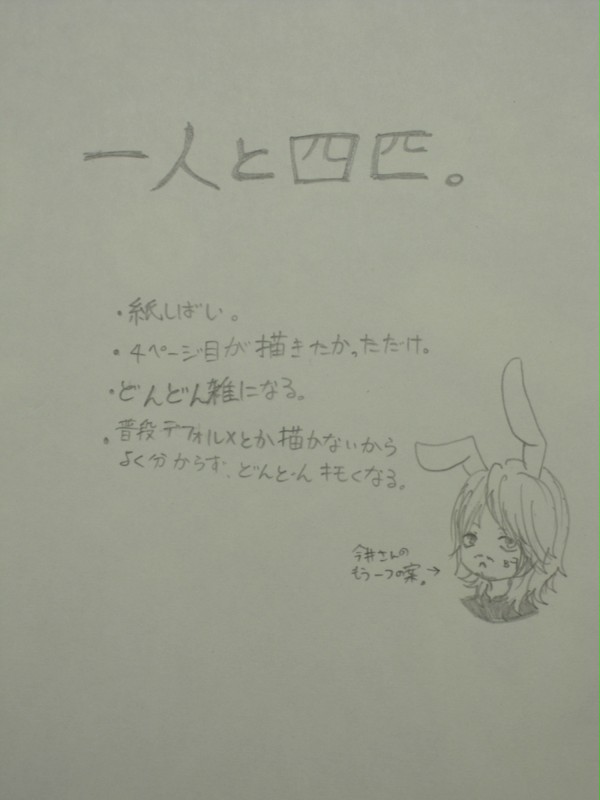 一人と四匹。
・紙しばい。
・4ページ目が描きたかっただけ。
・どんどん雑になる。
・普段デフォルメとか描かないから
よく分からず、どんどんキモくなる。
今井さんの
もう一つの案。→